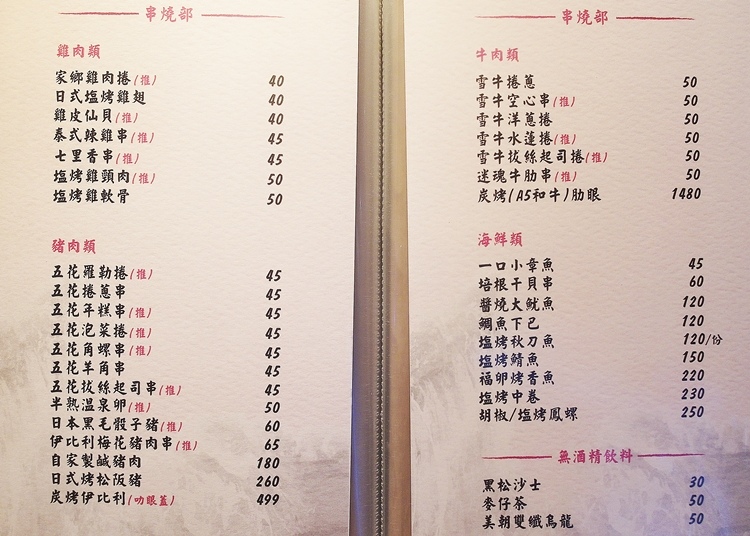 串燒部
雞肉類
家鄉雞肉捲(推) 40
日式塩烤雞翅 40
雞皮仙貝(推) 40
泰式辣雞串(推) 45
七里香串(推) 45
塩烤雞頸肉(推) 50
塩烤雞軟骨 50
豬肉類
五花羅勒捲(推) 45
五花捲蔥串 45
五花年糕串(推) 45
五花泡菜捲(推) 45
五花角螺串(推) 45
五花羊角串 45
五花拔絲起司串(推) 45
半熟温泉卵(推) 50
日本黑毛骰子豬(推) 60
伊比利梅花豬肉串(推) 65
自家製鹹豬肉 180
日式烤松阪豬 260
炭烤伊比利(叻眼蓋) 499
串燒部
牛肉類
雪牛捲蔥 50
雪牛空心串(推) 50
雪牛洋蔥捲 50
雪牛水蓮捲(推) 50
雪牛拔絲起司捲(推) 50
迷魂牛肋串(推) 50
炭烤(A5和牛)肋眼 1480
海鮮類
一口小章魚 45
培根干貝串 60
醬燒大魷魚 120
鯛魚下巴 120
塩烤秋刀魚 120/份
塩烤鯖魚 150
福卵烤香魚 220
塩烤中卷 230
胡椒/塩烤鳳螺 250
無酒精飲料
黑松沙士 30
麥仔茶 50
美朝雙纖烏龍 50